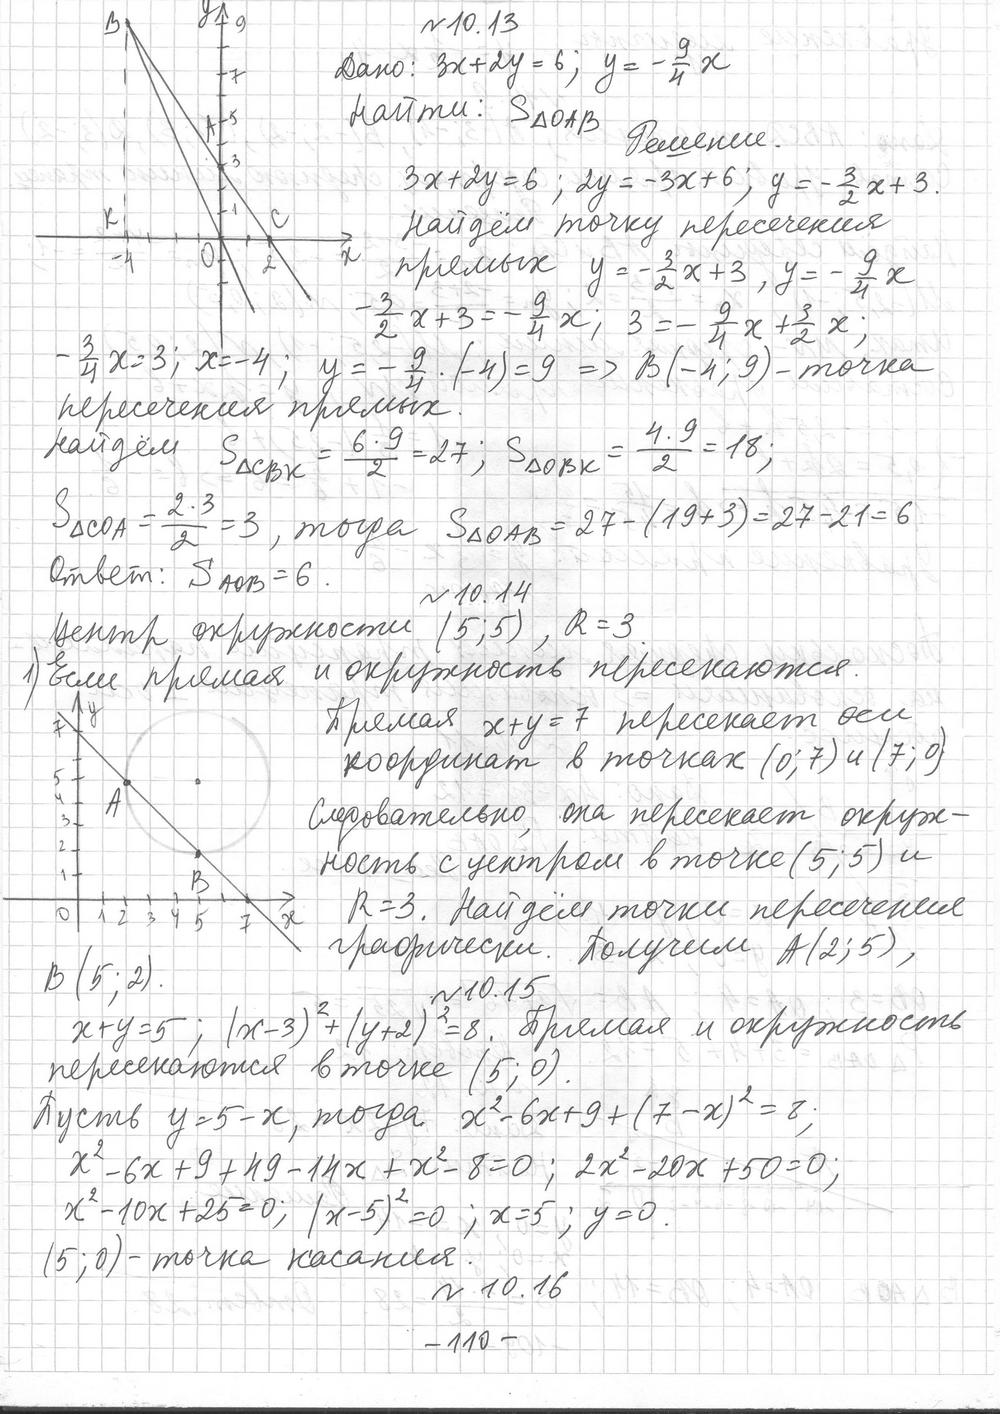 В у 9
7
5
А
3
1
К С
-4 О 2 х
№10.13
Дано: 3x+2y=6; y=-9/4 x
Найти: S△OAB
Решение.
3x+2y=6; 2y=-3x+6; y=-3/2 x+3.
Найдём точку пересечения
прямых y=-3/2 x+3, y=-9/4 x
-3/2 x+3=-9/4 x; 3=-9/4 x+3/2 x;
-3/4 x=3; x=-4; y=-9/4·(-4)=9 => B(-4; 9)-точка
пересечения прямых.
Найдём S△CBK = 6·9/2 = 27; S△OBK = 4·9/2 = 18;
S△COA = 2·3/2 = 3, тогда S△OAB = 27-(19+3)=27-21=6
Ответ: S AOB = 6.
№10.14
Центр окружности (5;5), R=3.
1) Если прямая и окружность пересекаются.
7 у
5
4
3
2
1
А
В
0 1 2 3 4 5 7 х
Прямая x+y=7 пересекает оси
координат в точках (0;7) и (7;0)
Следовательно, она пересекает окруж-
ность с центром в точке (5;5) и
R=3. Найдём точки пересечения
графически. Получим A(2;5),
B(5;2).
№10.15
x+y=5; (x-3)²+(y+2)²=8. Прямая и окружность
пересекаются в точке (5;0).
Пусть y=5-x, тогда x²-6x+9+(7-x)²=8;
x²-6x+9+49-14x+x²-8=0; 2x²-20x+50=0;
x²-10x+25=0; (x-5)²=0; x=5; y=0.
(5;0)-точка касания.
№ 10.16
-110-